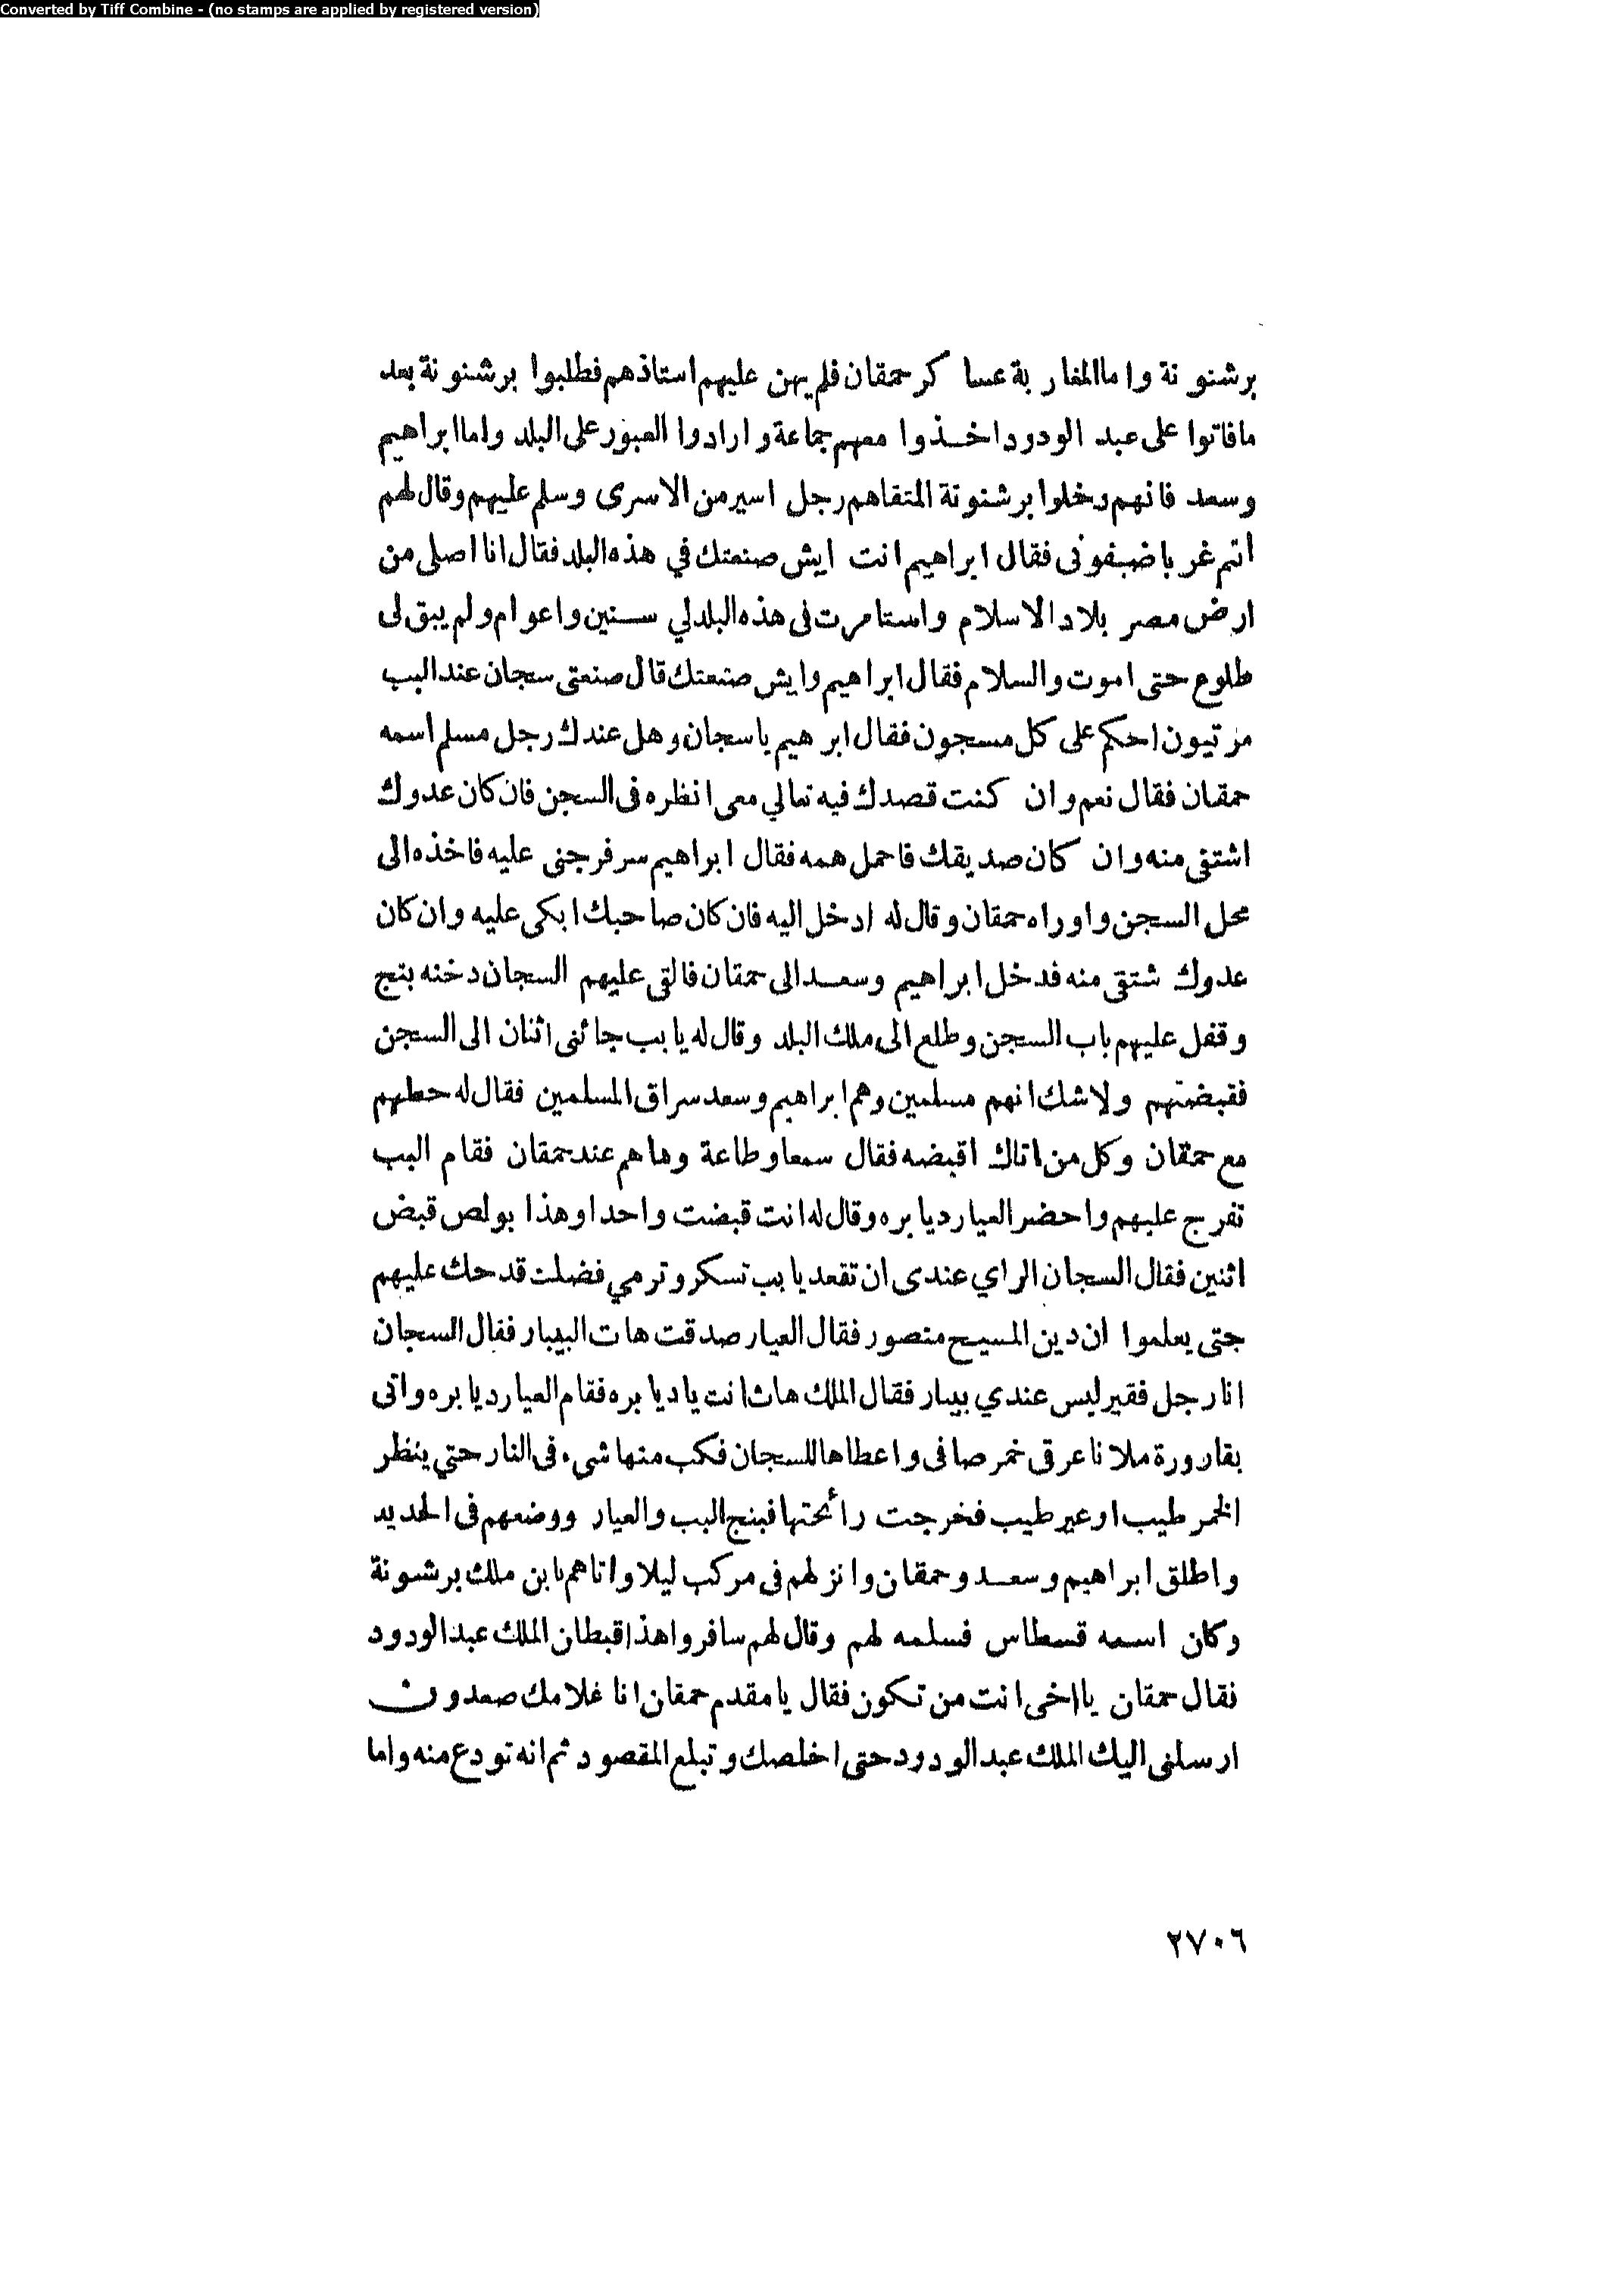 Converted by Tiff Combine - (no stamps are applied by registered version)
برشنونة واماالمغاربة عساكرحمقان فلم يهن عليهم استاذهم فطلبوا برشنونة بعد
مافاتوا على عبد الودود اخذوا معهم جماعة وارادوا العبور على البلد واماابراهيم
وسعد فانهم دخلوا برشنونة التقاهم رجل اسير من الاسرى وسلم عليهم وقال لهم
أتم غربا ضيفونى فقال ابراهيم انت ايش صنعتك في هذه البلد فقال انا اصلى من
ارض مصر بلاد الاسلام واستامرت فى هذه البلدلي سنين واعوام ولم يبق لى
طلوع حتى اموت والسلام فقال ابراهيم وايش صنعتك قال صنعتى سجان عند البب
مرتيون احكم على كل مسجون فقال ابرهيم ياسجان وهل عندك رجل مسلم اسمه
حمقان فقال نعم وان كنت قصدك فيه تعالي معى انظره فى السجن فان كان عدوك
اشتفى منه وان كان صديقك فاحمل همه فقال ابراهيم سر فرجنى عليه فاخذه الى
محل السجن واوراه حمقان وقال له ادخل اليه فان كان صاحبك ابكى عليه وان كان
عدوك شتقى منه فدخل ابراهيم وسعد الى حمقان فالقى عليهم السجان دخنه بنج
وقفل عليهم باب السجن وطلع الى ملك البلد وقال له يابب جائنى اثنان الى السجن
فقبضتهم ولاشك انهم مسلمين وهم ابراهيم وسعد سراق المسلمين فقال له حطهم
مع حمقان وكل من اتاك اقبضه فقال سمعا وطاعة وهاهم عند حمقان فقام البب
تفرج عليهم واحضر العيار ديابره وقال له انت قبضت واحدا وهذا بولص قبض
اثنين فقال السجان الراي عندى ان تقعد يابب تسكر وترمي فضلت قدحك عليهم
جتى يعلموا ان دين المسيح منصور فقال العيار صدقت هات البيبار فقال السجان
انا رجل فقير ليس عندي بيبار فقال الملك هات انت ياديابره فقام العيار ديابره واتى
بقارورة ملانا عرقى خمر صافى واعطاها للسجان فكب منها شىء فى النار حتي ينظر
الخمر طيب او عير طيب فخرجت رائحتها فبنج البب والعيار ووضعهم فى الحديد
واطلق ابراهيم وسعد وحمقان وانزلهم فى مركب ليلا واتاهم بابن ملك برشونة
وكان اسمه قسطاس فسلمه لهم وقال لهم سافروا هذا قبطان الملك عبد الودود
نقال حمقان يااخى انت من تكون فقال يامقدم حمقان انا غلامك صعدون
ارسلنى اليك الملك عبد الودود حتى اخلصك وتبلع المقصود ثم انه تودع منه واما
٢٧٠٦